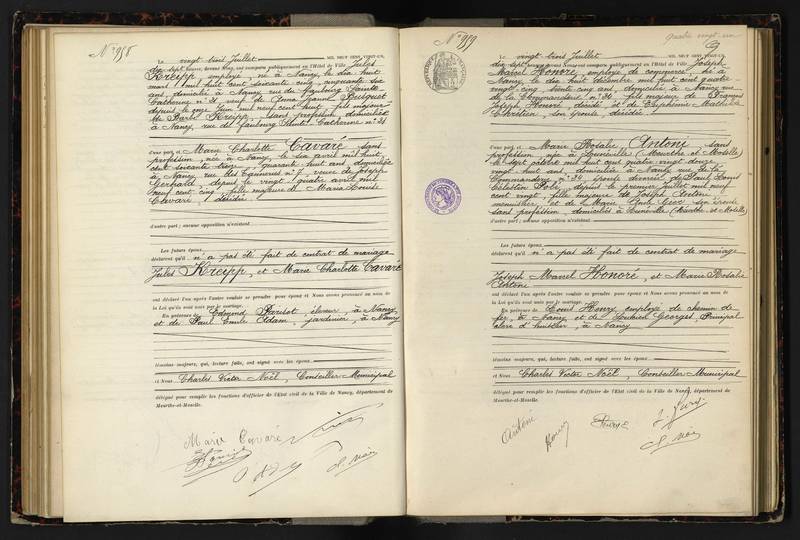 N° 958
Le vingt-trois Juillet MIL NEUF CENT VINGT-UN,
dix sept heures, devant Nous, ont comparu publiquement en l'Hôtel de Ville Jules
Kreipp, employé, né à Nancy, le dix huit
mars mil huit cent soixante-cinq, cinquante six
ans, domicilié à Nancy, rue du faubourg Sainte
Catherine n° 31, veuf de Jeanne
depuis le onze Juin mil neuf cent huit, fils majeur
de Kreipp, sans profession, domiciliée
à Nancy, rue du faubourg Sainte-Catherine n° 31
d'une part et Marie Charlotte Cavaré, sans
profession, née à Nancy, le six avril mil huit
cent soixante treize, quarante-huit ans, domiciliée
à Nancy, rue des Tanneries n° 7, veuve de Joseph
Gerhard depuis le vingt-quatre avril mil
neuf cent cinq, fille majeure de Marie Louise
Cavaré, décédée
d'autre part ; aucune opposition n'existant
Les futurs époux
déclarent qu'il n'a pas été fait de contrat de mariage
Jules Kreipp, et Marie Charlotte Cavaré
ont déclaré l'un après l'autre vouloir se prendre pour époux et Nous avons prononcé au nom de
la Loi qu'ils sont unis par le mariage.
En présence de Edmond Parisot, à Nancy
et de Paul Emile Adam, jardinier, à Nancy
témoins majeurs, qui, lecture faite, ont signé avec les époux
et Nous Charles Victor Noël, Conseiller Municipal
délégué pour remplir les fonctions d'officier de l'Etat civil de la Ville de Nancy, département de
Meurthe-et-Moselle.
Marie Cavaré
C. Noël
Quatre vingt-un
N° 959
Le vingt-trois Juillet MIL NEUF CENT VINGT-UN,
dix sept heures, devant Nous ont comparu publiquement en l'Hôtel de Ville Joseph
Marcel Honoré, employé de commerce, né à
Nancy, le dix huit décembre mil huit cent quatre
vingt cinq, trente cinq ans, domicilié à Nancy, rue
de la Commanderie n° 34, fils majeur de François
Joseph Honoré, décédé, et de Euphémie Mathilde
Chrétien, son épouse, décédée
d'une part et Marie Rosalie Antoni, sans
profession, née à Lunéville (Meurthe et Moselle)
le sept octobre mil huit cent quatre vingt douze,
vingt huit ans, domiciliée à Nancy, rue de la
Commanderie n° 34, épouse divorcée de Paul Louis
Célestin depuis le premier juillet mil neuf
cent vingt, fille majeure de Joseph Antoni,
menuisier, et de Marie son épouse
sans profession, domiciliés à Lunéville (Meurthe-et-Moselle)
d'autre part ; aucune opposition n'existant
Les futurs époux
déclarent qu'il n'a pas été fait de contrat de mariage
Joseph Marcel Honoré, et Marie Rosalie
Antoni
ont déclaré l'un après l'autre vouloir se prendre pour époux et Nous avons prononcé au nom de
la Loi qu'ils sont unis par le mariage.
En présence de Louis Henry, employé de chemin de
fer, à Nancy et de Georges, Principal
clerc d'huissier, à Nancy
témoins majeurs, qui, lecture faite, ont signé avec les époux
et Nous Charles Victor Noël, Conseiller Municipal
délégué pour remplir les fonctions d'officier de l'Etat civil de la Ville de Nancy, département de
Meurthe-et-Moselle.
Antoni
Henry
C. Noël